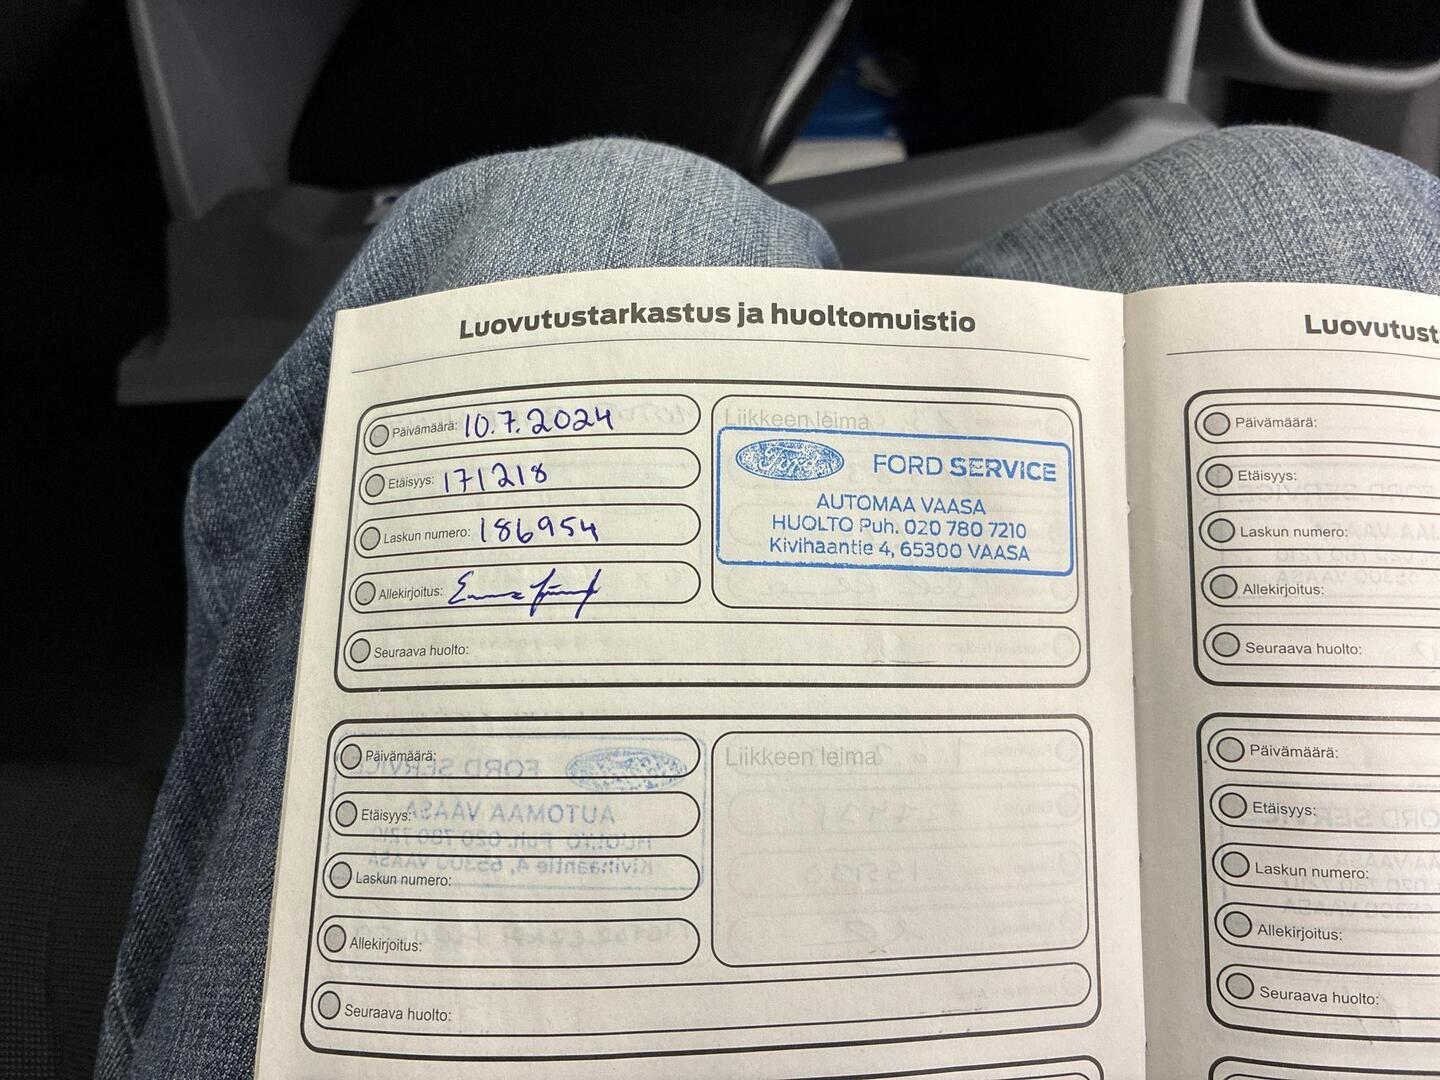 Luovutustarkastus ja huoltomuistio
Päivämäärä: 10.7.2024
Etäisyys: 171218
Laskun numero: 186954
Allekirjoitus:
Seuraava huolto:
Liikkeen leima
Ford FORD SERVICE
AUTOMAA VAASA
HUOLTO Puh. 020 780 7210
Kivihaantie 4, 65300 VAASA
Päivämäärä:
Etäisyys:
Laskun numero:
Allekirjoitus:
Seuraava huolto:
Liikkeen leima
Luovutust
Päivämäärä:
Etäisyys:
Laskun numero:
Allekirjoitus:
Seuraava huolto:
Päivämäärä:
Etäisyys:
Laskun numero:
Allekirjoitus:
Seuraava huolto: